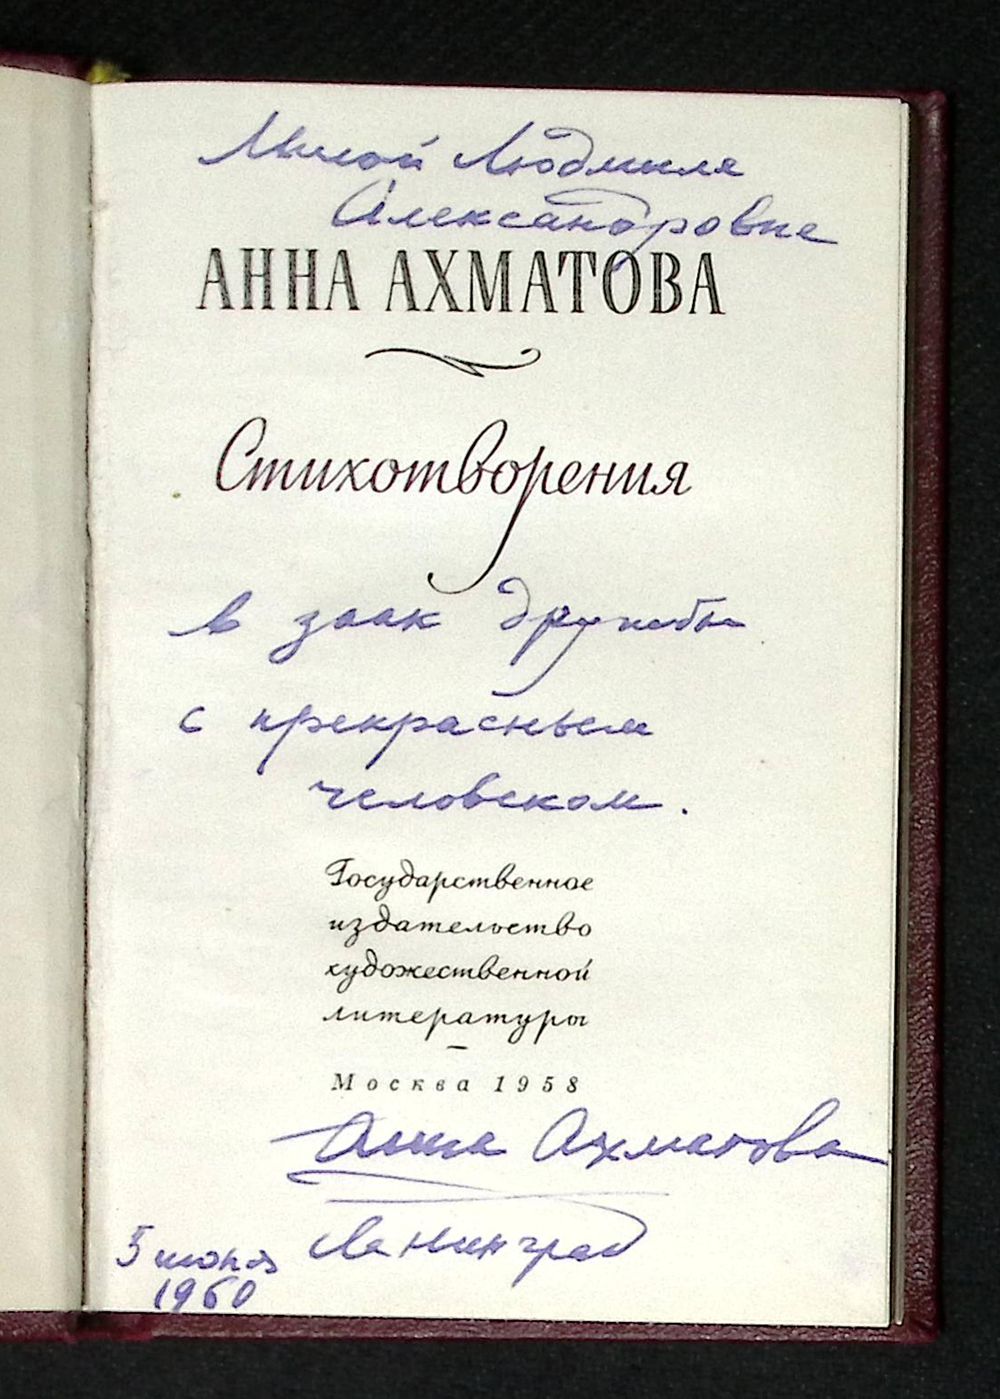 Милой Людмиле
Александровне
АННА АХМАТОВА
Стихотворения
в знак дружбы
с прекрасным
человеком.
Государственное
издательство
художественной
литературы
Москва 1958
Анна Ахматова
5 июня Ленинград
1960